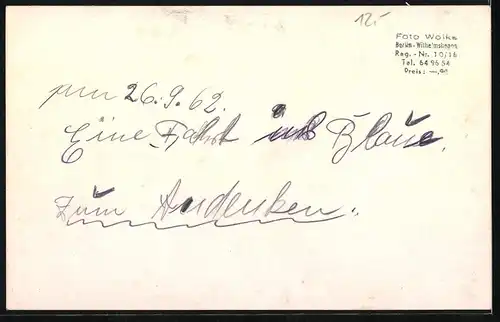 12,-
Foto Wolke
Berlin-Wilhelmshagen
Reg.-Nr. 10/16
Tel. 64 96 54
Preis: —,90
am 26.9.62.
Eine Fahrt ins Blaue.
Zum Andenken.